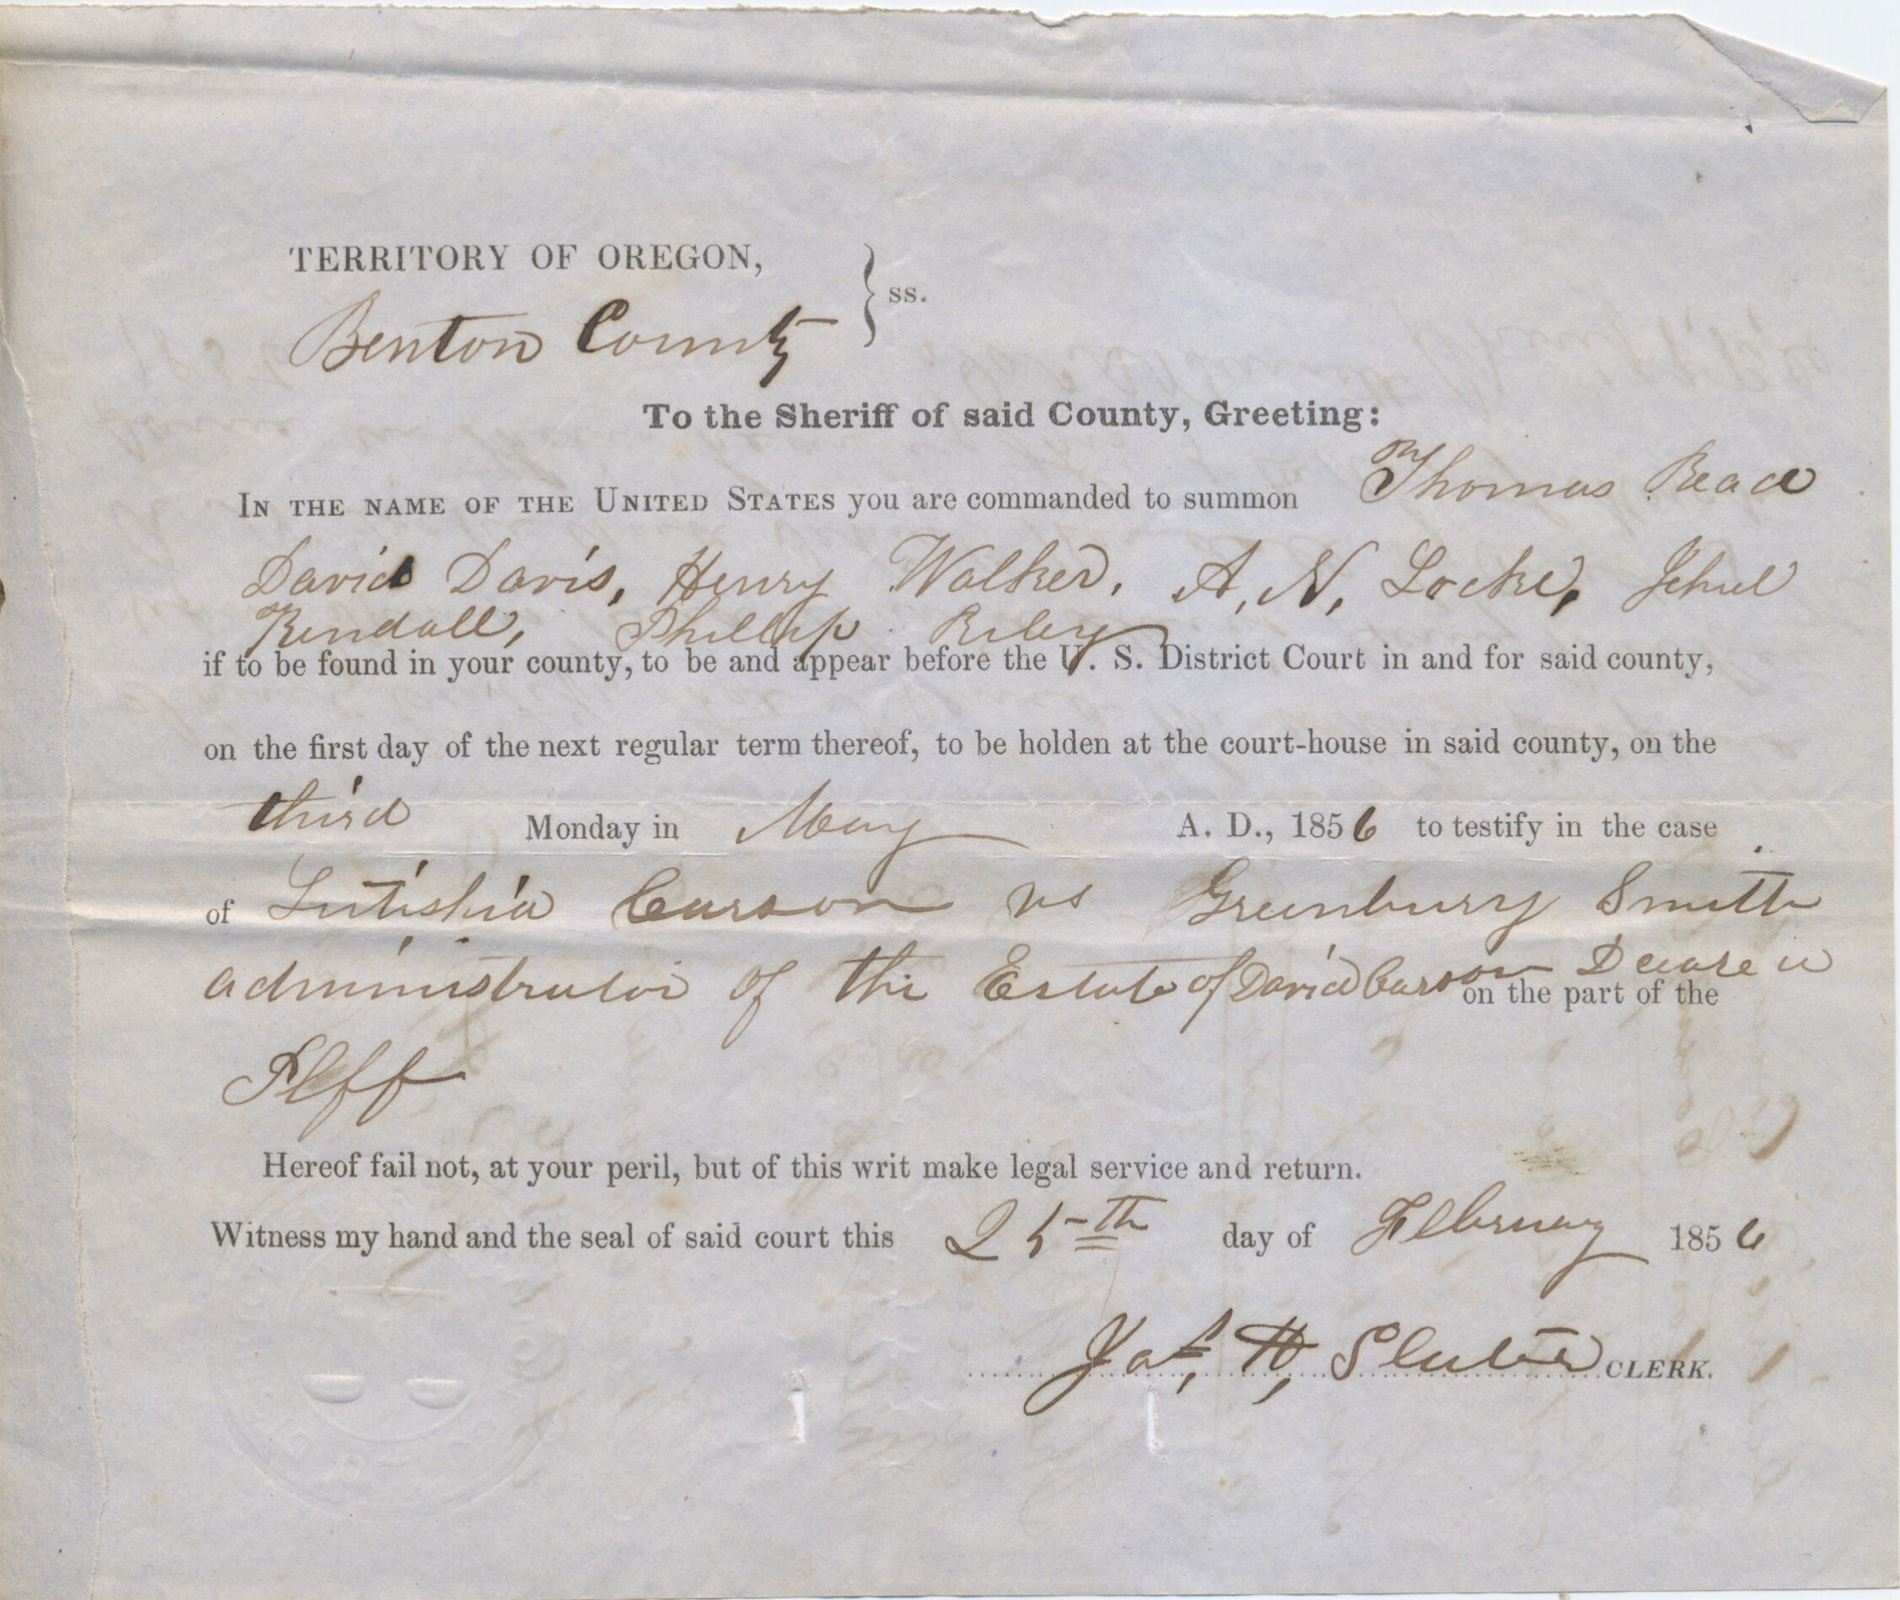 TERRITORY OF OREGON,
Benton County } ss.
To the Sheriff of said County, Greeting:
IN THE NAME OF THE UNITED STATES you are commanded to summon Thomas Read
David Davis, Henry Walker, A, N, Locke, Jehul
Kendall, Phillip Riley
if to be found in your county, to be and appear before the U. S. District Court in and for said county,
on the first day of the next regular term thereof, to be holden at the court-house in said county, on the
third Monday in May A. D., 1856 to testify in the case
of Lutishia Carson vs Greenbury Smith
administrator of the Estate of David Carson Deceased
on the part of the
Plff
Hereof fail not, at your peril, but of this writ make legal service and return.
Witness my hand and the seal of said court this 25th day of February 1856
Jas, H, Slater CLERK.